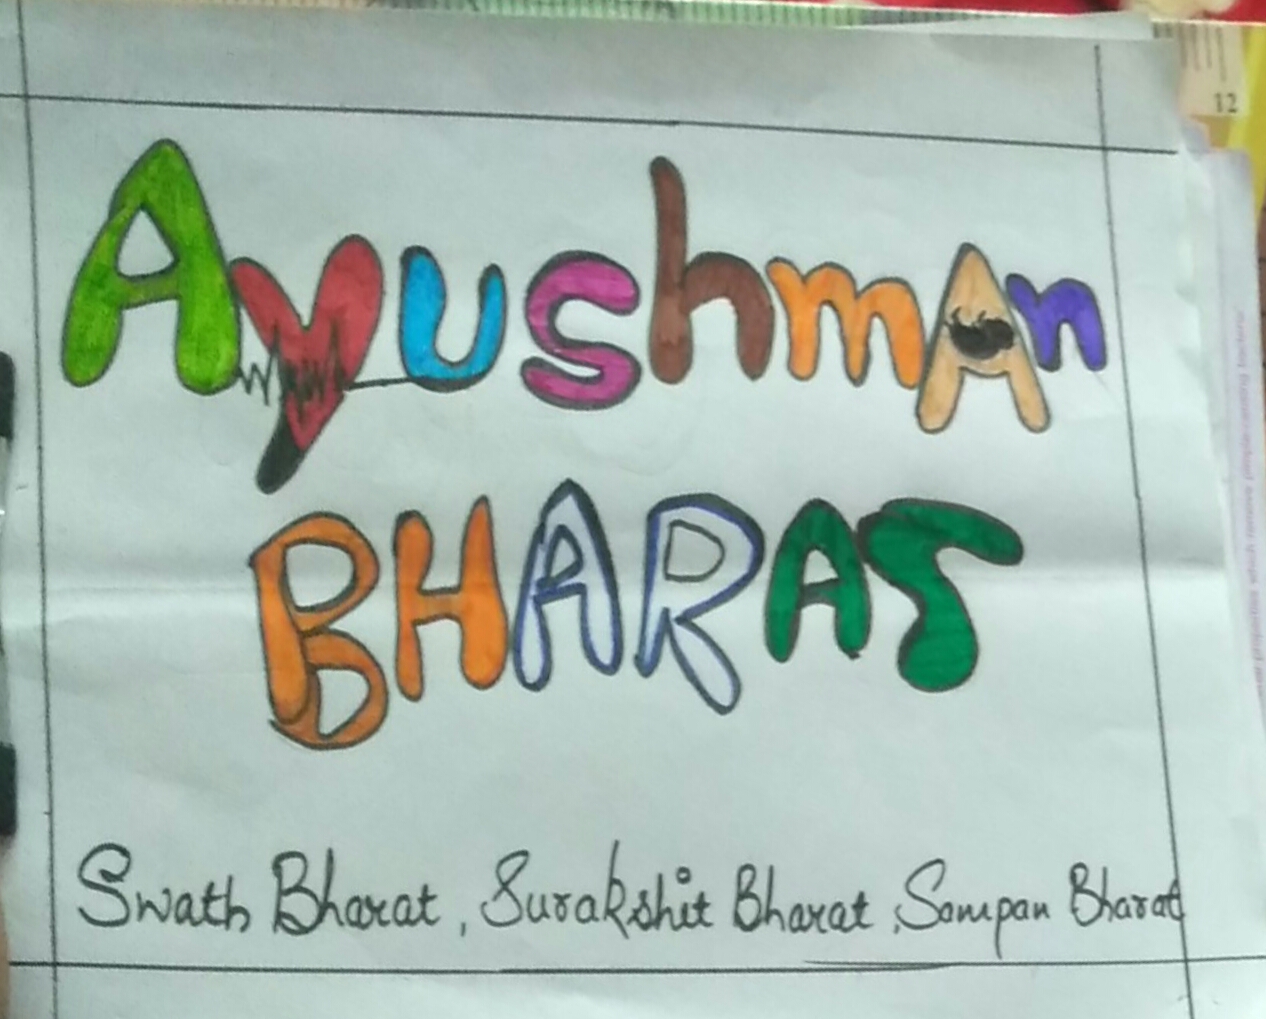 Ayushman
BHARAT
Swath Bharat, Surakshit Bharat, Sampan Bharat
12